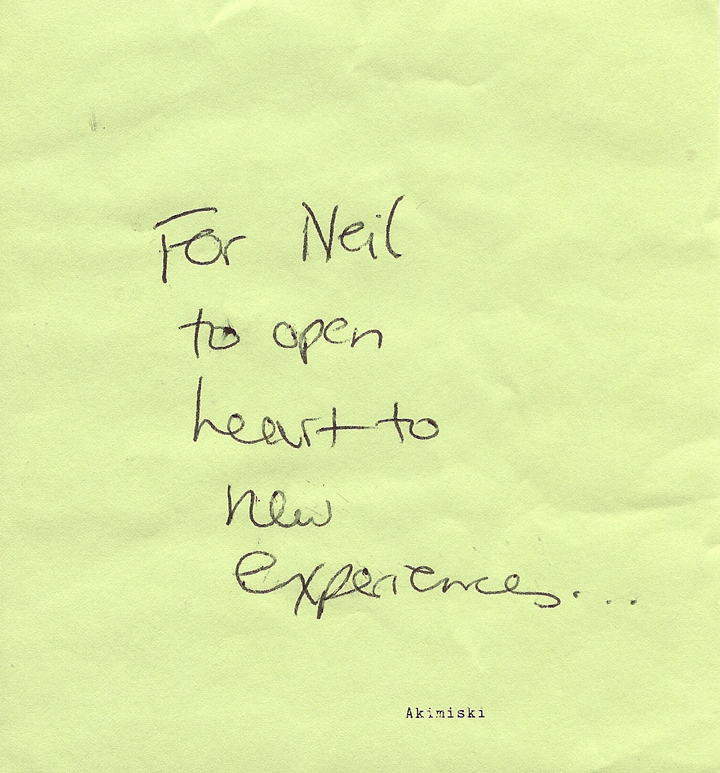 For Neil
to open
heart to
new
experiences....
Akimiski